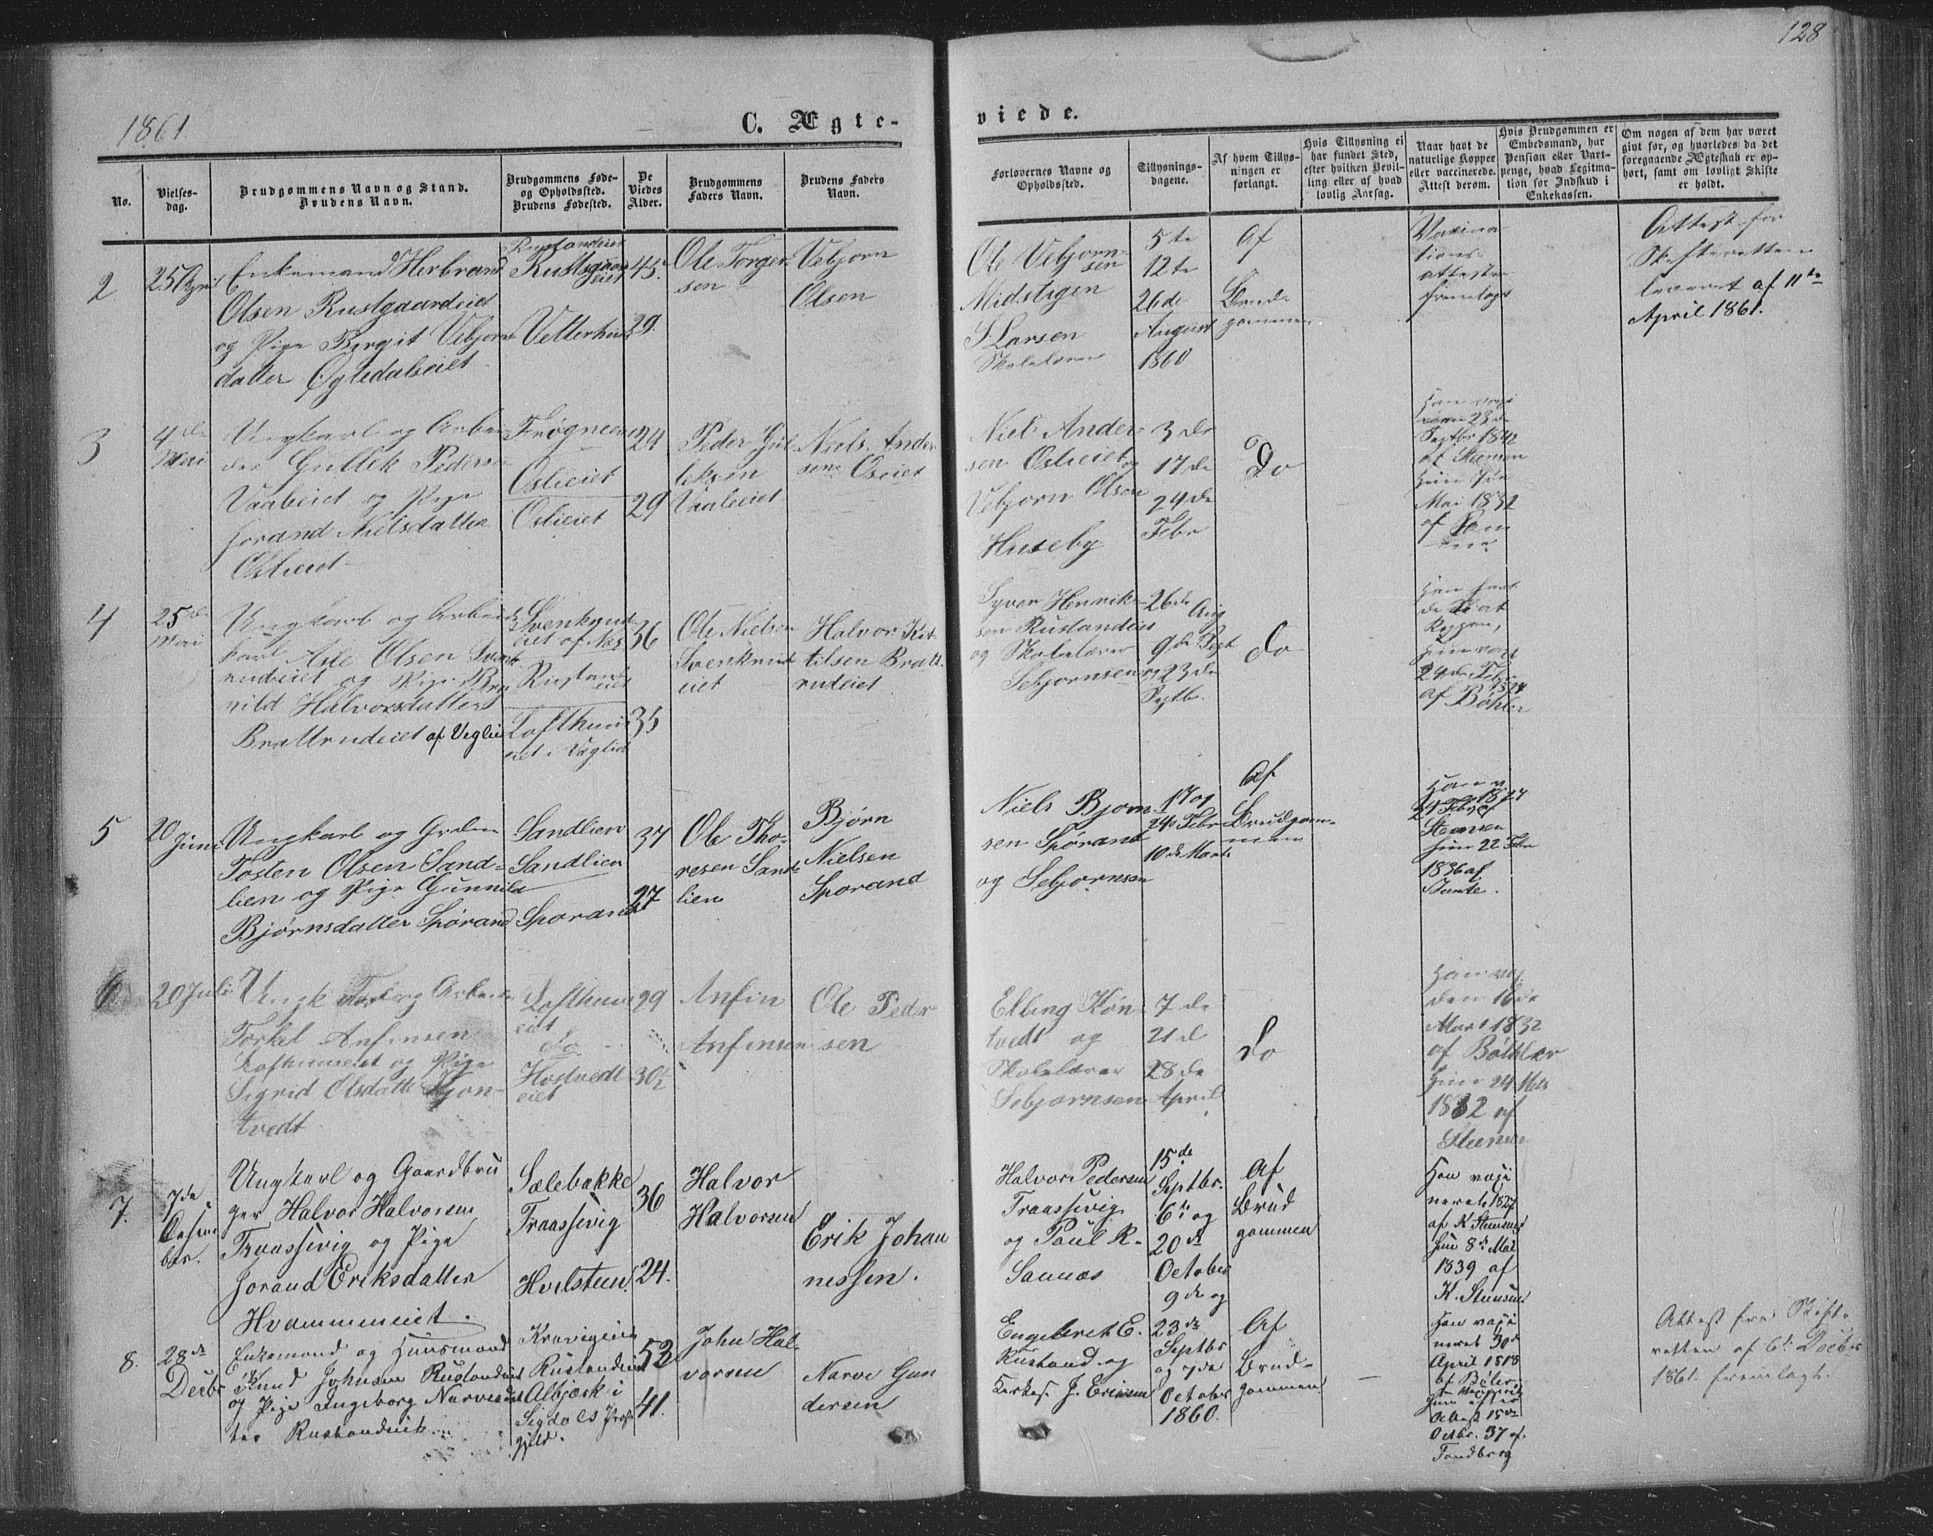 128
1861
C. Ægte-
viede.
No.
Vielses-
dag.
Brudgommens Navn og Stand.
Brudens Navn.
Brudgommens Føde-
og Opholdssted.
Brudens Fødested.
De
Viedes
Alder.
Brudgommens
Faders Navn.
Brudens Faders
Navn.
Forlovernes Navne og
Opholdssted.
Tillysnings-
dagene.
Af hvem Tillys-
ningen er
forlangt.
Hvis Tillysning ei
har fundet Sted,
efter hvilken Bevil-
ling eller af hvad
lovlig Aarsag.
Naar havt de
naturlige Kopper
eller vaccinerede.
Attest derom.
Hvis Brudgommen er
Embedsmand, hur
Pension eller Vart-
penge, hvad Legitima-
tion for Indskud i
Enkekassen.
Om nogen af dem har været
gift før, og hvorledes da det
foregaaende Ægteskab er op-
hørt, samt om lovligt Skifte
er holdt.
2
25 April
Enkemand Herbrand
Olsen Rustgaardeiet
og Pige Bergit Vebjorns
datter Øgledaleiet
Rustgaard
eiet
45
29
Ole Torger
sen
Vebjorn
Olsen
Ole Vebjorn-
sen
Midstigen
S Larsen
Skolelærer
5te
12te
26de
August
1860
Af
Brud-
gommen
Vaxina
tions-
attester
fremlagt
Attest for
Skifteretten
leveret af 11te
April 1861.
3
4de
Mai
Ungkarl og Arbei
der Gullek Pedersen
Vaaleiet og Pige
Jorand Nielsdatter
Oslieiet
Oslieiet
Oslieiet
24
29
Peder Gul
leksen
Vaaleiet
Niels Ander
sen Oslieiet
Niels Ander-
sen Oslieiet og
Vebjorn Olsen
Huseby
3de
17de
24de
Febr
Do
Septbr 1842
af Steensen
Hun 7de
Mai 1832
4
25de
Mai
Ungkarl og Arbeids
karl Asle Olsen Svenk
rudeiet og Pige
nild Halvorsdatter
Bratterudeiet af Veglie
eiet af Nes
Rustand
eiet
Lofthuus
eiet i Vegliet
36
35
Ole Nielsen
eiet
Halvor Kit
tilsen Bratt
rudeiet
Syver Henrik-
sen Rustandeiet
og Skolelærer
Sebjornsen
26de Aug
9de Sept
23de
Septb.
do
af Bøhler
5
20 Juni
Ungkarl og Grdm
Tosten Olsen Sand-
lien og Pige Gunnild
Bjørnsdatter Spørand
Sandlien
Sandlien
Sporand
37
27
Ole Tho-
resen Sand-
lien
Bjørn
Nielsen
Sporand
Niels Bjorn-
sen Spørand
og Sebjornsen
17 og
24 Febr
10de Marts
Af
Brudgom-
men
Steensen
Hun 22 Febr
1836 af
6
20 Juli
Torkel Anfinsen
Lofthuuseiet og Pige
Sigrid Olsdatter Kjon-
tvedt
Lofthuus
eiet
do
Hostvedt
eiet
29
30½
Anfin
Anfinsen
Ole Peder
sen
Elling Kon-
tvedt og
Skolelærer
Sebjornsen
7de
21d
28de
April
do
Han vax
den 16de
Mart 1832
af Bøthler
Hun 24 Mai
1832 af
Steensen
7.
7de
Desem
ber.
Ungkarl og Gaardbru
ger Halvor Halvorsen
Traassevig og Pige
Jorand Eriksdatter
Hvammeneiet.
Sælebakke
Traassevig
Hvilsteen.
36
24.
Halvor
Halvorsen
Erik Johan
nessen.
Halvor Pedersen
Traassevig
og Paul R.
Sannæs
15de
Septbr.
6te og
20de
October
Af
Brud
gommen
Han vaxi
neret 1827
af K. Steensen
Hun 8de Mai
1839 af
K. Steensen
8.
28de
Decbr
Enkemand og Huusmand
Knud Johnsen Rustandeiet
og Pige Ingeborg Narvesdat
ter Rustandeiet.
Kravigeiet
Rustandeiet
Albjærk i
Sigdals Præste
gjeld.
52
41.
John Hal-
vorsen
Narve Gun
dersen
Engebret E.
Rustand og
Kirkes. J. Ericsen
9de og
23de
Septbr
og 7de
October
1860.
Af
Brud-
gommen
Han vaxi
neret 30de
April 1818
Hun efter
Attest 15de
Octbr. 37 af
Tandberg
Attest fra Skift-
retten af 6te Decbr
1861 fremlagt.